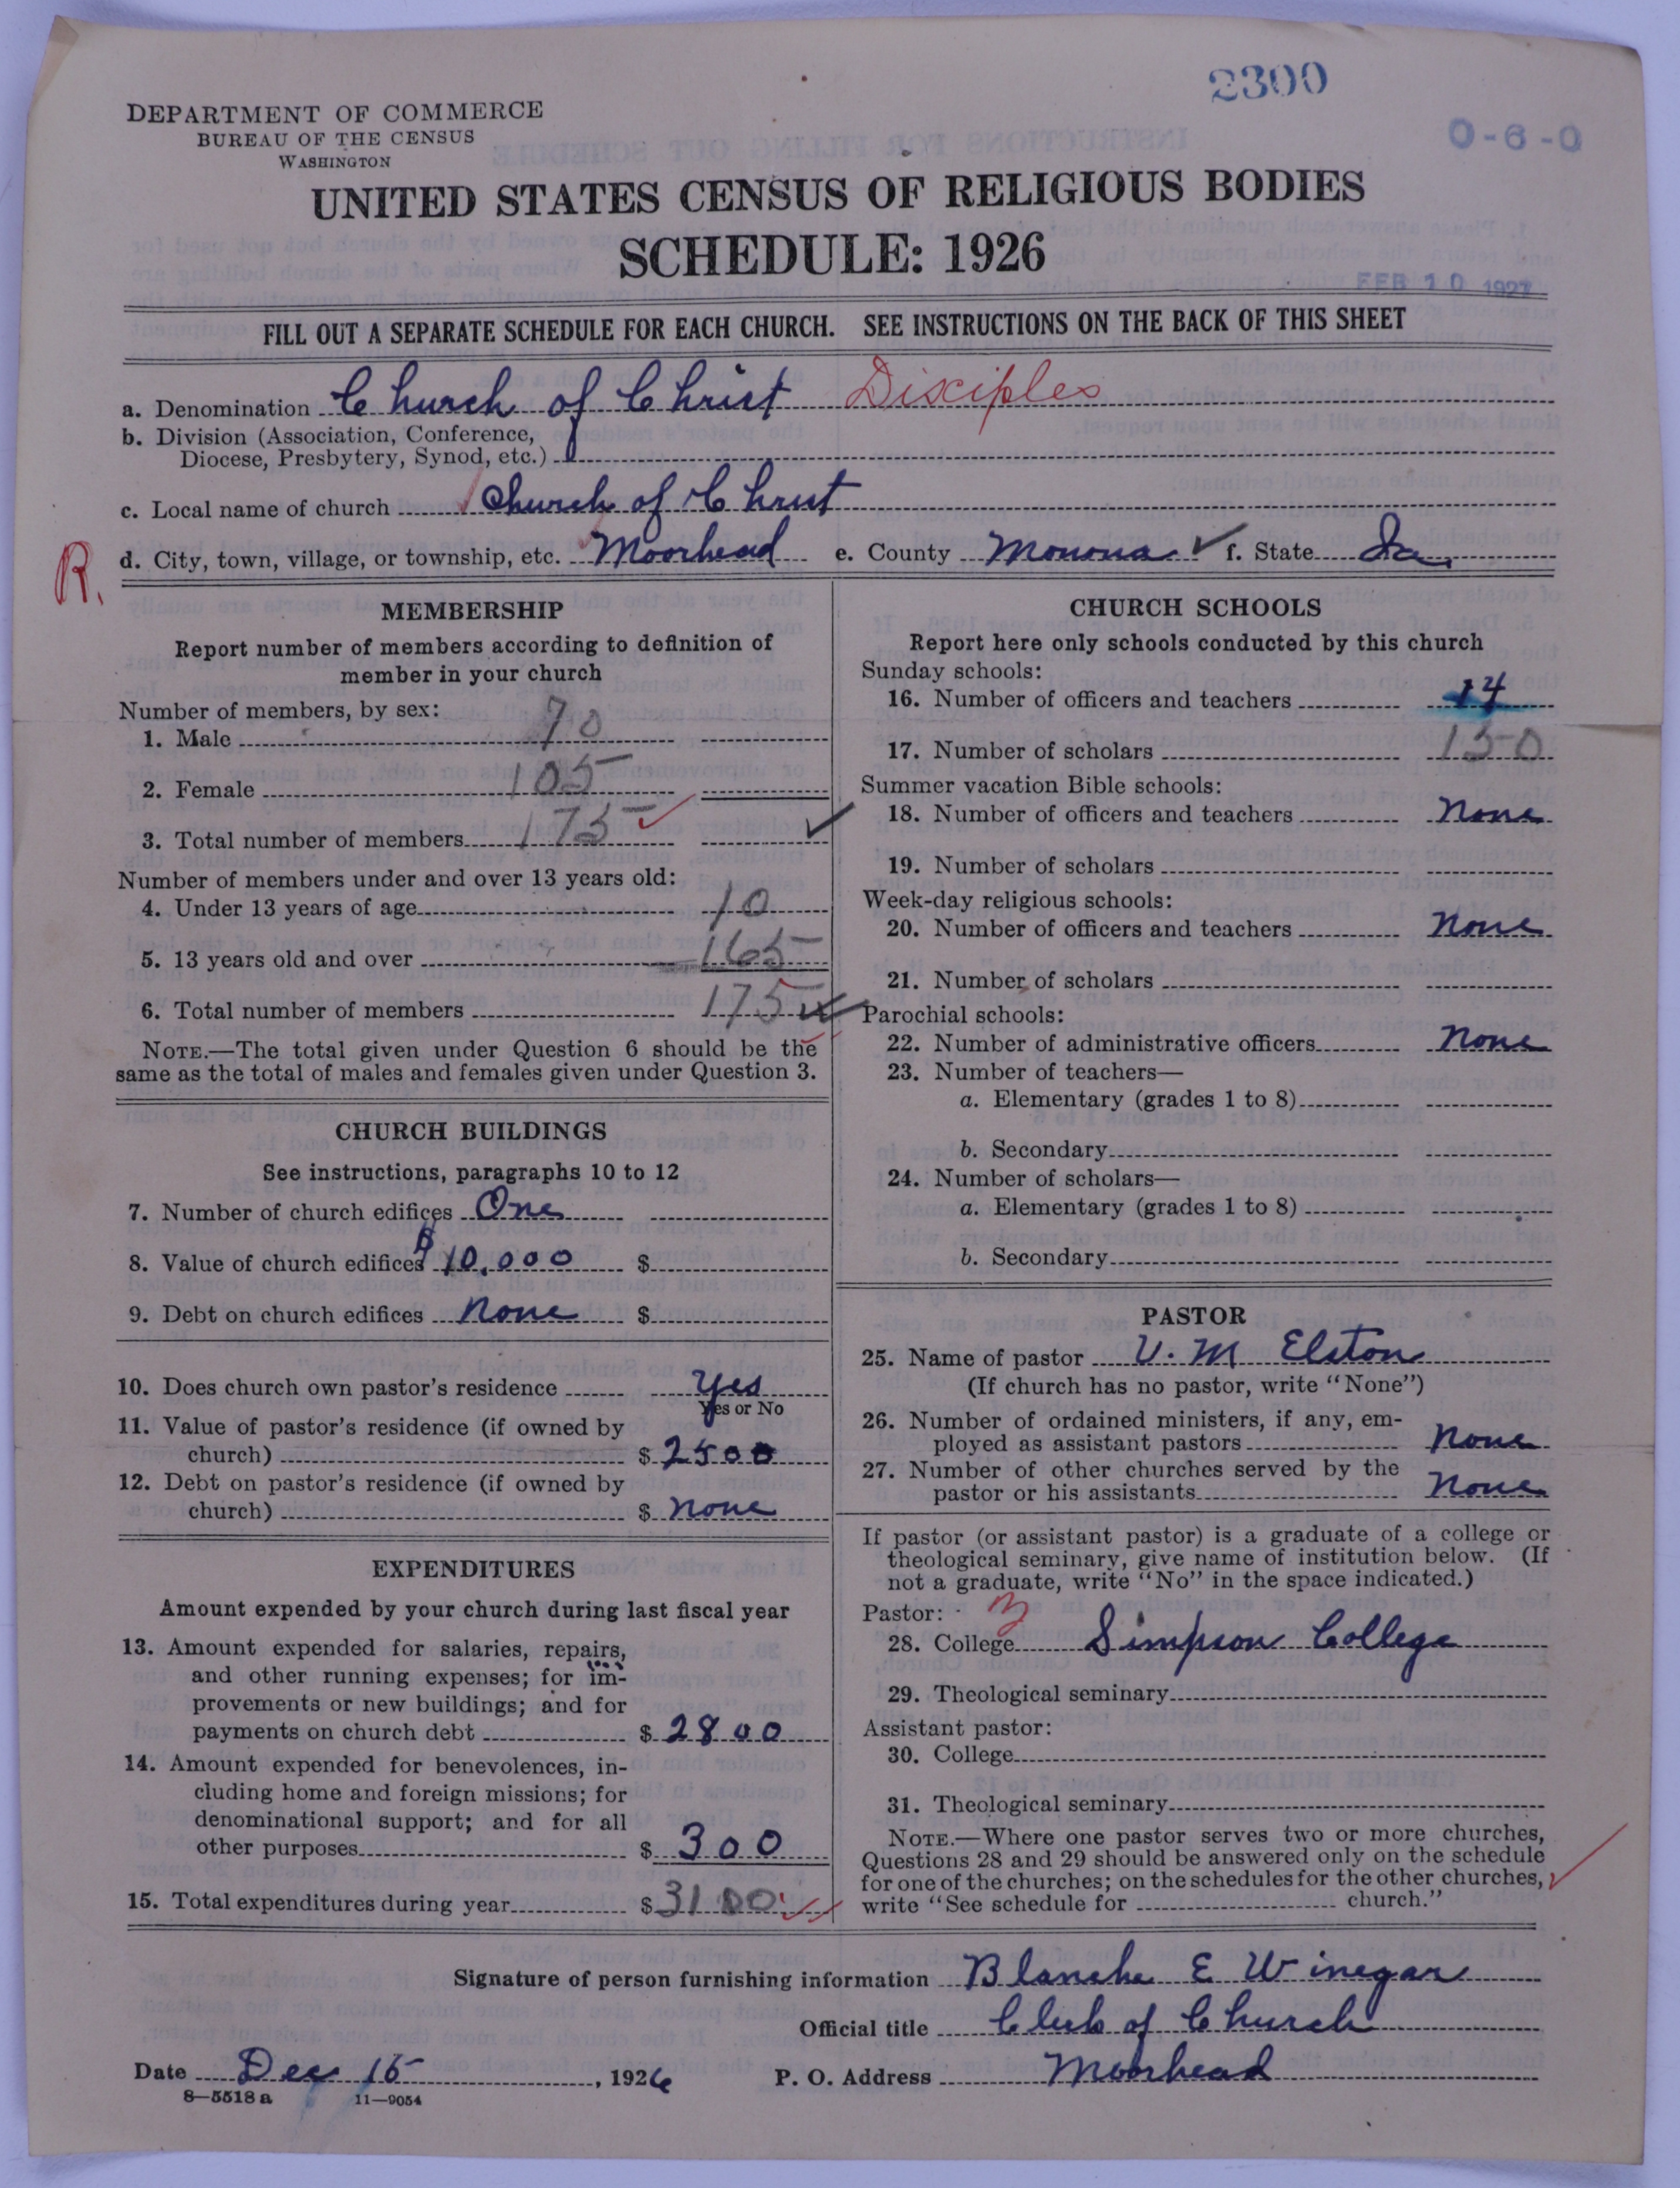 2300
0-6-0
DEPARTMENT OF COMMERCE
BUREAU OF THE CENSUS
WASHINGTON
UNITED STATES CENSUS OF RELIGIOUS BODIES
SCHEDULE: 1926
FEB 10 1927
FILL OUT A SEPARATE SCHEDULE FOR EACH CHURCH. SEE INSTRUCTIONS ON THE BACK OF THIS SHEET
a. Denomination Church of Christ Disciples
b. Division (Association, Conference,
Diocese, Presbytery, Synod, etc.)
c. Local name of church Church of Christ
R. d. City, town, village, or township, etc. Moorhead e. County Monona ✓ f. State Ia.
MEMBERSHIP
Report number of members according to definition of
member in your church
Number of members, by sex:
1. Male 70
2. Female 105
3. Total number of members 175
Number of members under and over 13 years old:
4. Under 13 years of age 10
5. 13 years old and over 165
6. Total number of members 175
NOTE.—The total given under Question 6 should be the
same as the total of males and females given under Question 3.
CHURCH BUILDINGS
See instructions, paragraphs 10 to 12
7. Number of church edifices One
8. Value of church edifices $10,000 $
9. Debt on church edifices None $
10. Does church own pastor's residence Yes
Yes or No
11. Value of pastor's residence (if owned by
church) $ 2500
12. Debt on pastor's residence (if owned by
church) $ None
EXPENDITURES
Amount expended by your church during last fiscal year
13. Amount expended for salaries, repairs,
and other running expenses; for im-
provements or new buildings; and for
payments on church debt $ 2800
14. Amount expended for benevolences, in-
cluding home and foreign missions; for
denominational support; and for all
other purposes $ 300
15. Total expenditures during year $ 3100
CHURCH SCHOOLS
Report here only schools conducted by this church
Sunday schools:
16. Number of officers and teachers 14
17. Number of scholars 150
Summer vacation Bible schools:
18. Number of officers and teachers None
19. Number of scholars
Week-day religious schools:
20. Number of officers and teachers None
21. Number of scholars
Parochial schools:
22. Number of administrative officers None
23. Number of teachers—
a. Elementary (grades 1 to 8)
b. Secondary
24. Number of scholars—
a. Elementary (grades 1 to 8)
b. Secondary
PASTOR
25. Name of pastor V. M Elston
(If church has no pastor, write "None")
26. Number of ordained ministers, if any, em-
ployed as assistant pastors None
27. Number of other churches served by the
pastor or his assistants None
If pastor (or assistant pastor) is a graduate of a college or
theological seminary, give name of institution below. (If
not a graduate, write "No" in the space indicated.)
Pastor:
28. College Simpson College
29. Theological seminary
Assistant pastor:
30. College
31. Theological seminary
NOTE.—Where one pastor serves two or more churches,
Questions 28 and 29 should be answered only on the schedule
for one of the churches; on the schedules for the other churches,
write "See schedule for church."
Signature of person furnishing information Blanche E Winegar
Official title Clerk of Church
Date Dec 15, 1926 P. O. Address Moorhead
8—5518 a 11—9054